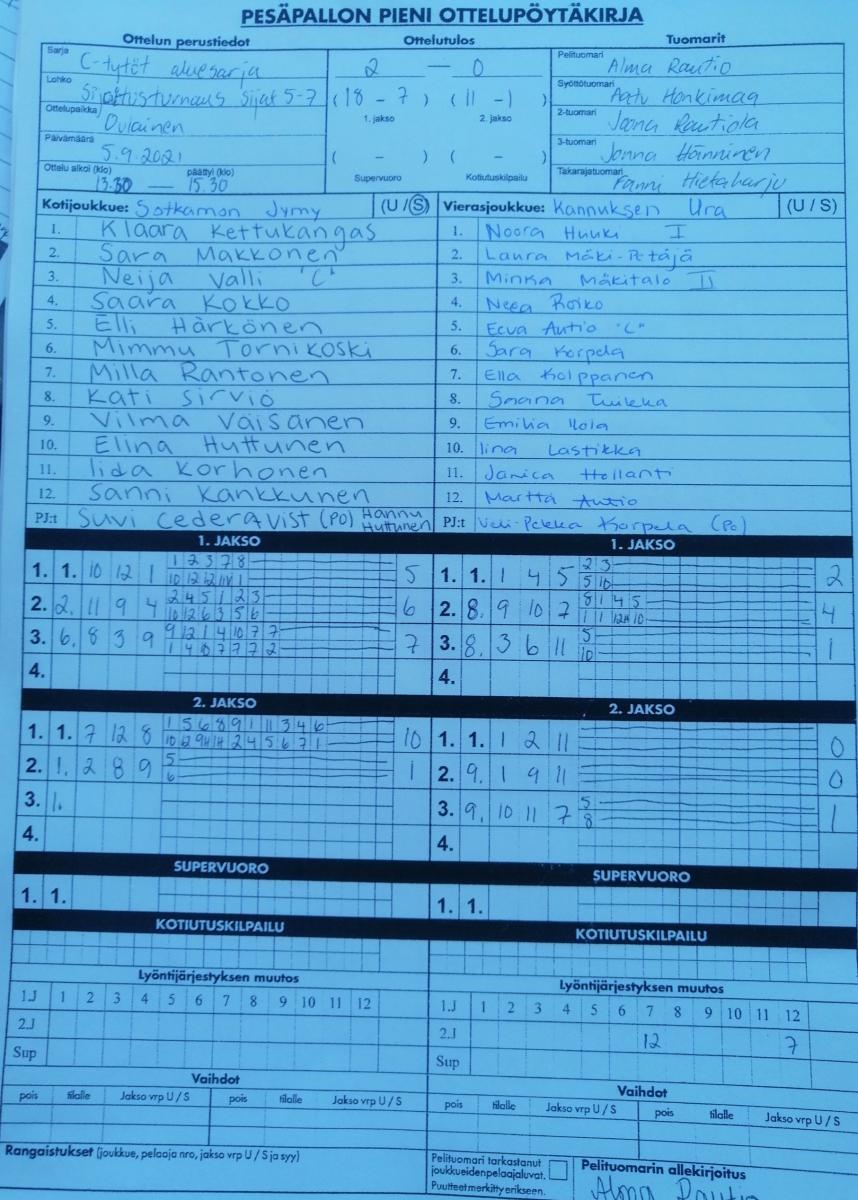 PESÄPALLON PIENI OTTELUPÖYTÄKIRJA
Ottelun perustiedot
Sarja C-tytöt aluesarja
Lohko Sijoitusturnaus sijat 5-7
Ottelupaikka Oulainen
Päivämäärä 5.9.2021
Ottelu alkoi (klo) päättyi (klo)
13.30 — 15.30
Ottelutulos
2 — 0
(18 - 7) (11 - 1)
1. jakso 2. jakso
( - ) ( - )
Supervuoro Kotiutuskilpailu
Tuomarit
Pelituomari Alma Rautio
Syöttötuomari Aatu Honkimaa
2-tuomari Joona Rautiola
3-tuomari Jonna Hänninen
Takarajatuomari Fanni Hietaharju
Kotijoukkue: Sotkamon Jymy (U / S)
1. Klaara Kettukangas
2. Sara Makkonen
3. Neija Valli "C"
4. Saara Kokko
5. Elli Härkönen
6. Mimmu Tornikoski
7. Milla Rantonen
8. Kati Sirviö
9. Vilma Väisänen
10. Elina Huttunen
11. Iida Korhonen
12. Sanni Kankkunen
PJ:t Suvi Cederqvist (PO) Hannu Huttunen
Vierasjoukkue: Kannuksen Ura (U / S)
1. Noora Huuki I
2. Laura Mäki-Petäjä
3. Minka Mäkitalo II
4. Neea Roiko
5. Eeva Autio "C"
6. Sara Korpela
7. Ella Kolppanen
8. Saana Tuikka
9. Emilia
10. Iina Lastikka
11. Janica Hollanti
12. Martta Autio
PJ:t Veli-Pekka Korpela (PO)
1. JAKSO
1. 1. 10 12 1
1 2 3 7 8
5
2. 2. 11 9 4
2 4 5 1 2 3
10 12 6 3 5 6
6
3. 6. 8 3 9
9 12 1 4 10 7 7
1 4 10 7 7 7 2
7
4.
1. JAKSO
1. 1. 1 4 5
2 3
5 10
2
2. 8. 9 10 7
8 1 4 5
4
3. 8. 3 6 11
5
10
1
4.
2. JAKSO
1. 1. 7 12 8
1 5 6 8 9 1 11 3 4 6
10
2. 1. 2 8 9
5
6
1
3. 1.
4.
2. JAKSO
1. 1. 1 2 11
0
2. 9. 1 9 11
0
3. 9. 10 11 7
5
8
1
4.
SUPERVUORO
1. 1.
SUPERVUORO
1. 1.
KOTIUTUSKILPAILU
KOTIUTUSKILPAILU
Lyöntijärjestyksen muutos
1.J 1 2 3 4 5 6 7 8 9 10 11 12
2.J
Sup
Lyöntijärjestyksen muutos
1.J 1 2 3 4 5 6 7 8 9 10 11 12
2.J 12 7
Sup
Vaihdot
pois tilalle Jakso vrp U / S pois tilalle Jakso vrp U / S
Vaihdot
pois tilalle Jakso vrp U / S pois tilalle Jakso vrp U / S
Rangaistukset (joukkue, pelaaja nro, jakso vrp U / S ja syy)
Pelituomari tarkastanut
joukkueidenpelaajaluvat.
Puutteet merkitty erikseen.
Pelituomarin allekirjoitus
Alma Rautio